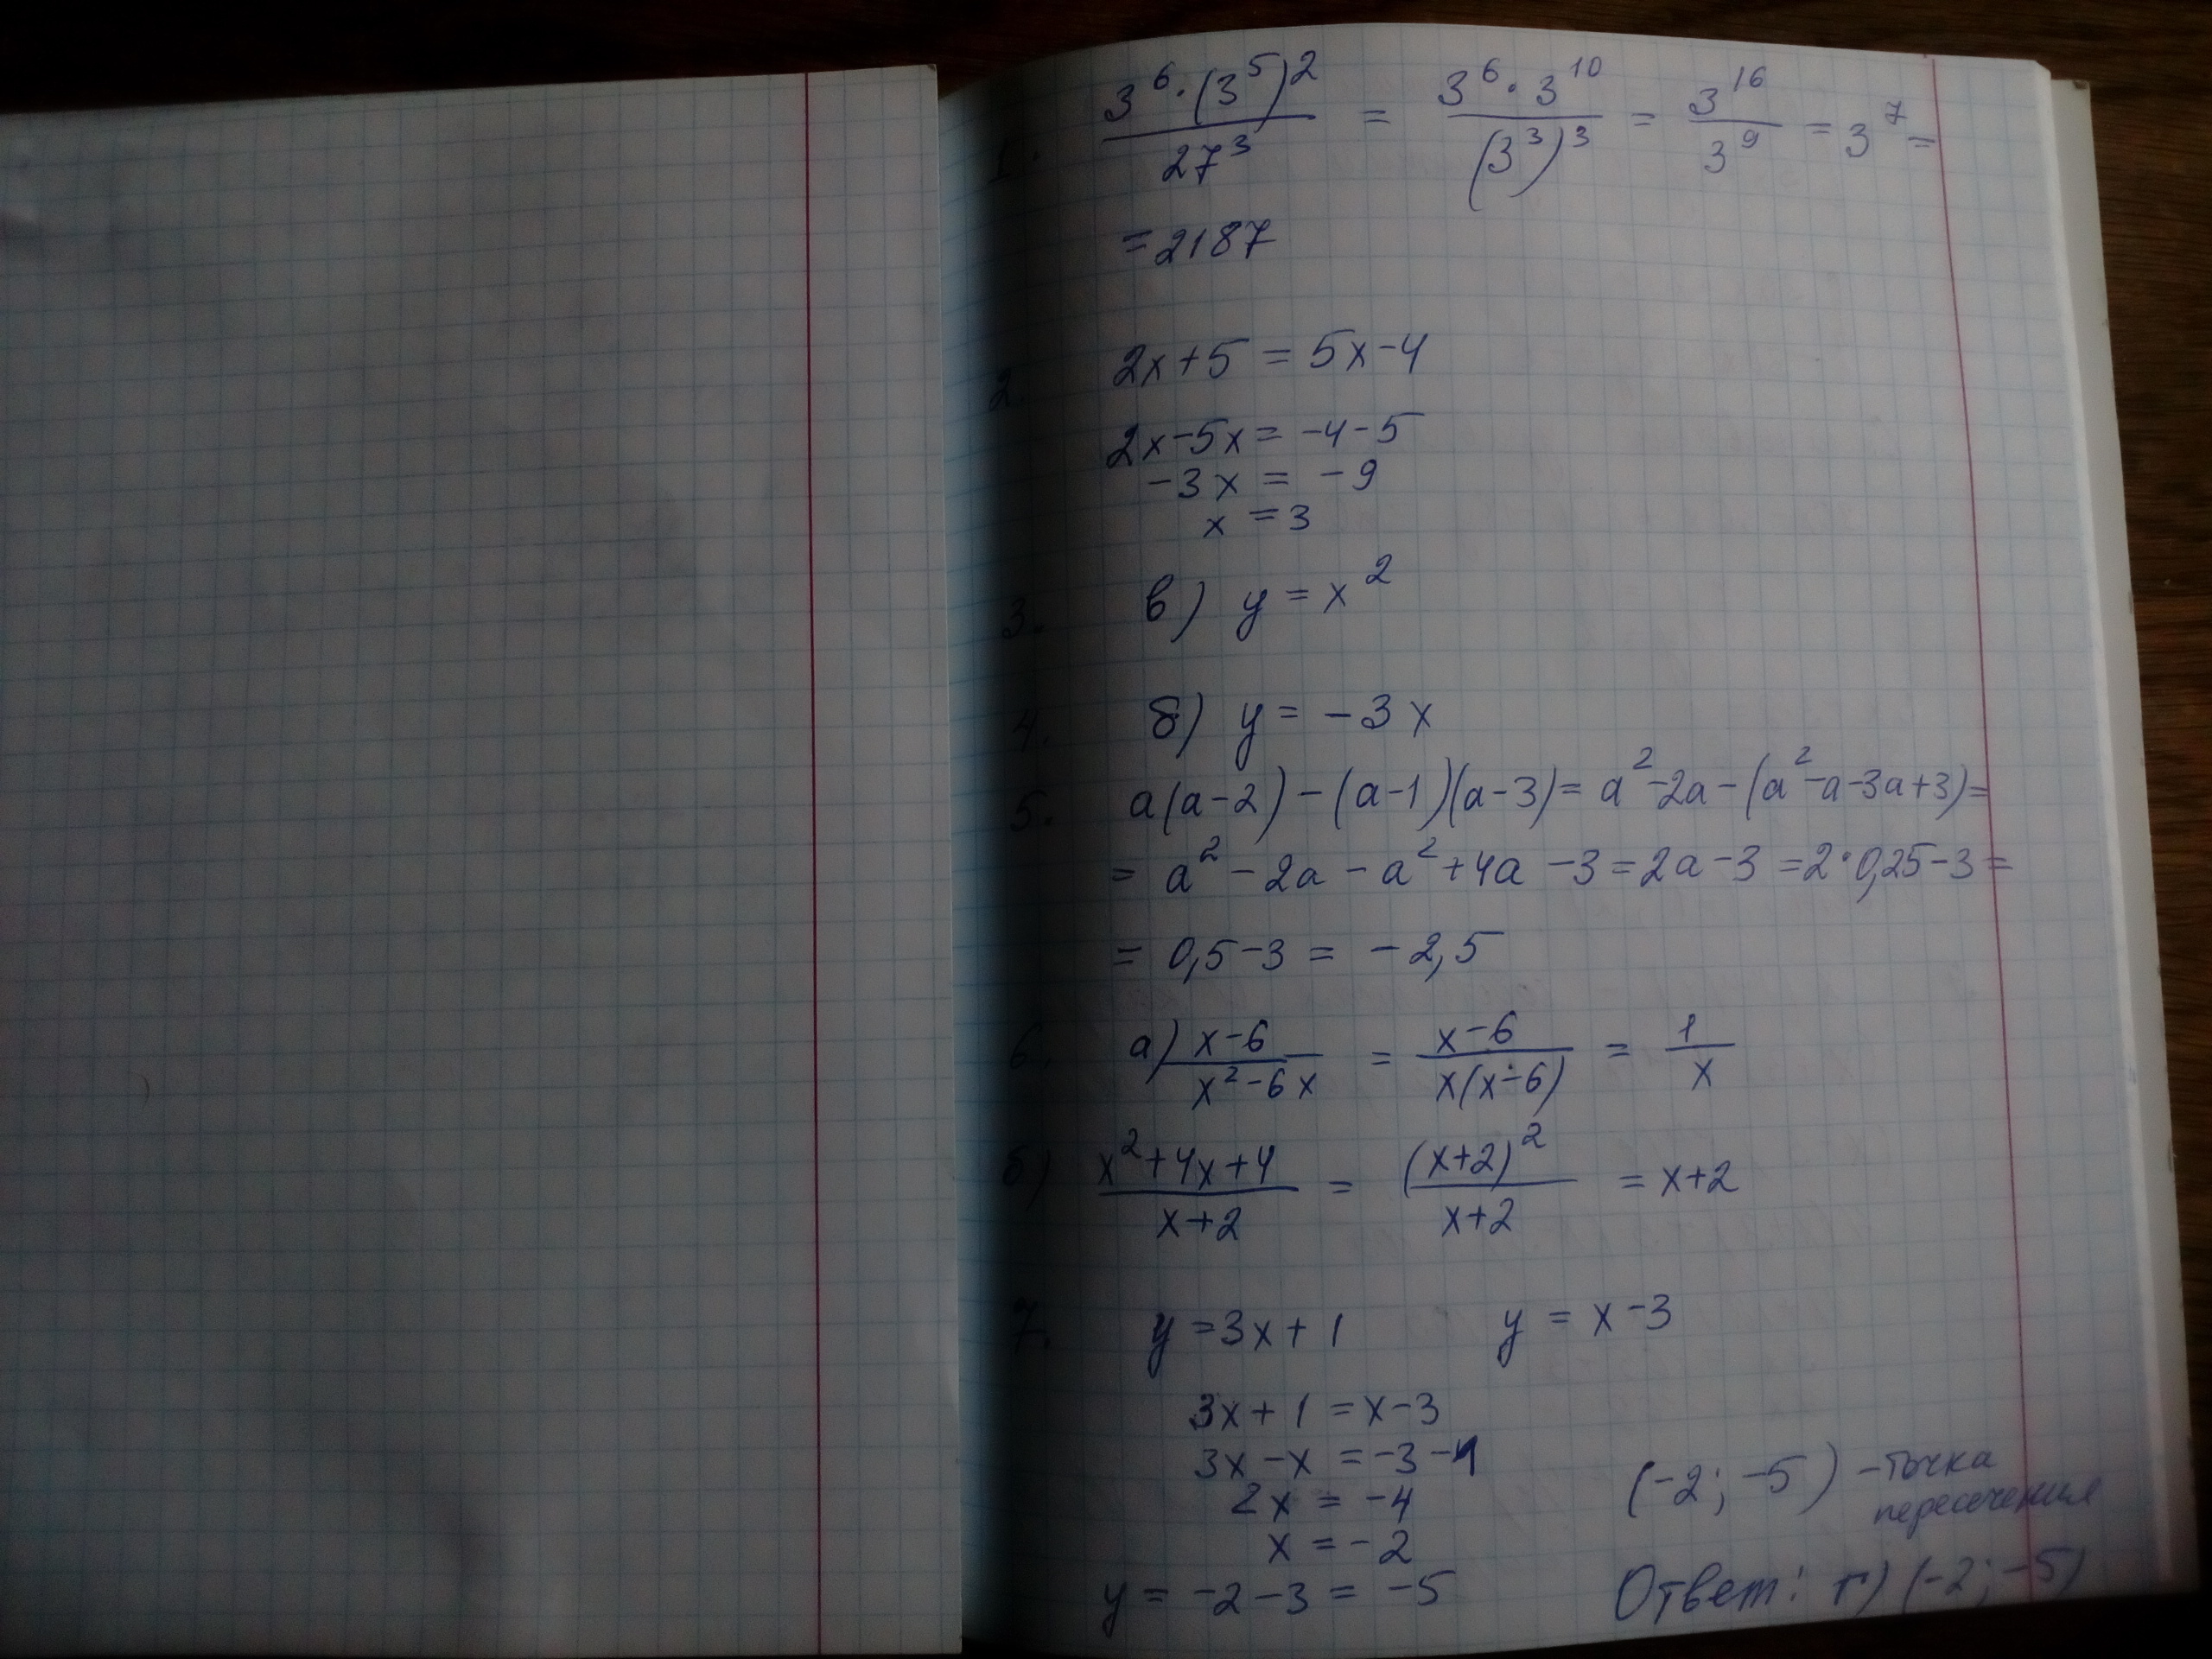 1. 3^6 · (3^5)^2 / 27^3 = 3^6 · 3^10 / (3^3)^3 = 3^16 / 3^9 = 3^7 =
= 2187
2. 2x + 5 = 5x - 4
2x - 5x = -4 - 5
-3x = -9
x = 3
3. в) y = x^2
4. б) y = -3x
5. a(a-2) - (a-1)(a-3) = a^2 - 2a - (a^2 - a - 3a + 3) =
= a^2 - 2a - a^2 + 4a - 3 = 2a - 3 = 2 · 0,25 - 3 =
= 0,5 - 3 = -2,5
6. а) x-6 / x^2-6x = x-6 / x(x-6) = 1 / x
б) x^2+4x+4 / x+2 = (x+2)^2 / x+2 = x+2
7. y = 3x + 1 y = x - 3
3x + 1 = x - 3
3x - x = -3 - 1
2x = -4
x = -2
y = -2 - 3 = -5
(-2; -5) - точка
пересечения
Ответ: г) (-2; -5)